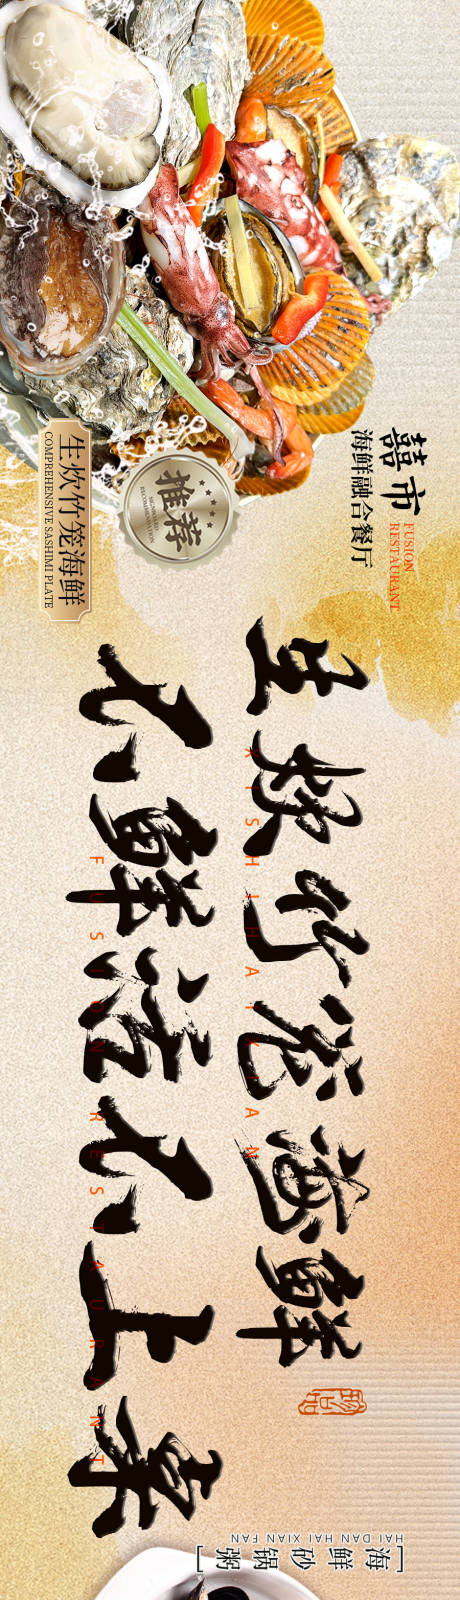 囍市
FUSION
RESTAURANT
海鲜融合餐厅
推荐
RECOMMENDATION
生炊竹笼海鲜
COMPREHENSIVE SASHIMI PLATE
生炊竹笼海鲜
XISHIHAIXIAN
不鲜活不上桌
FUSION RESTAURANT
[海鲜砂锅粥]
HAI DAN HAI XIAN FAN